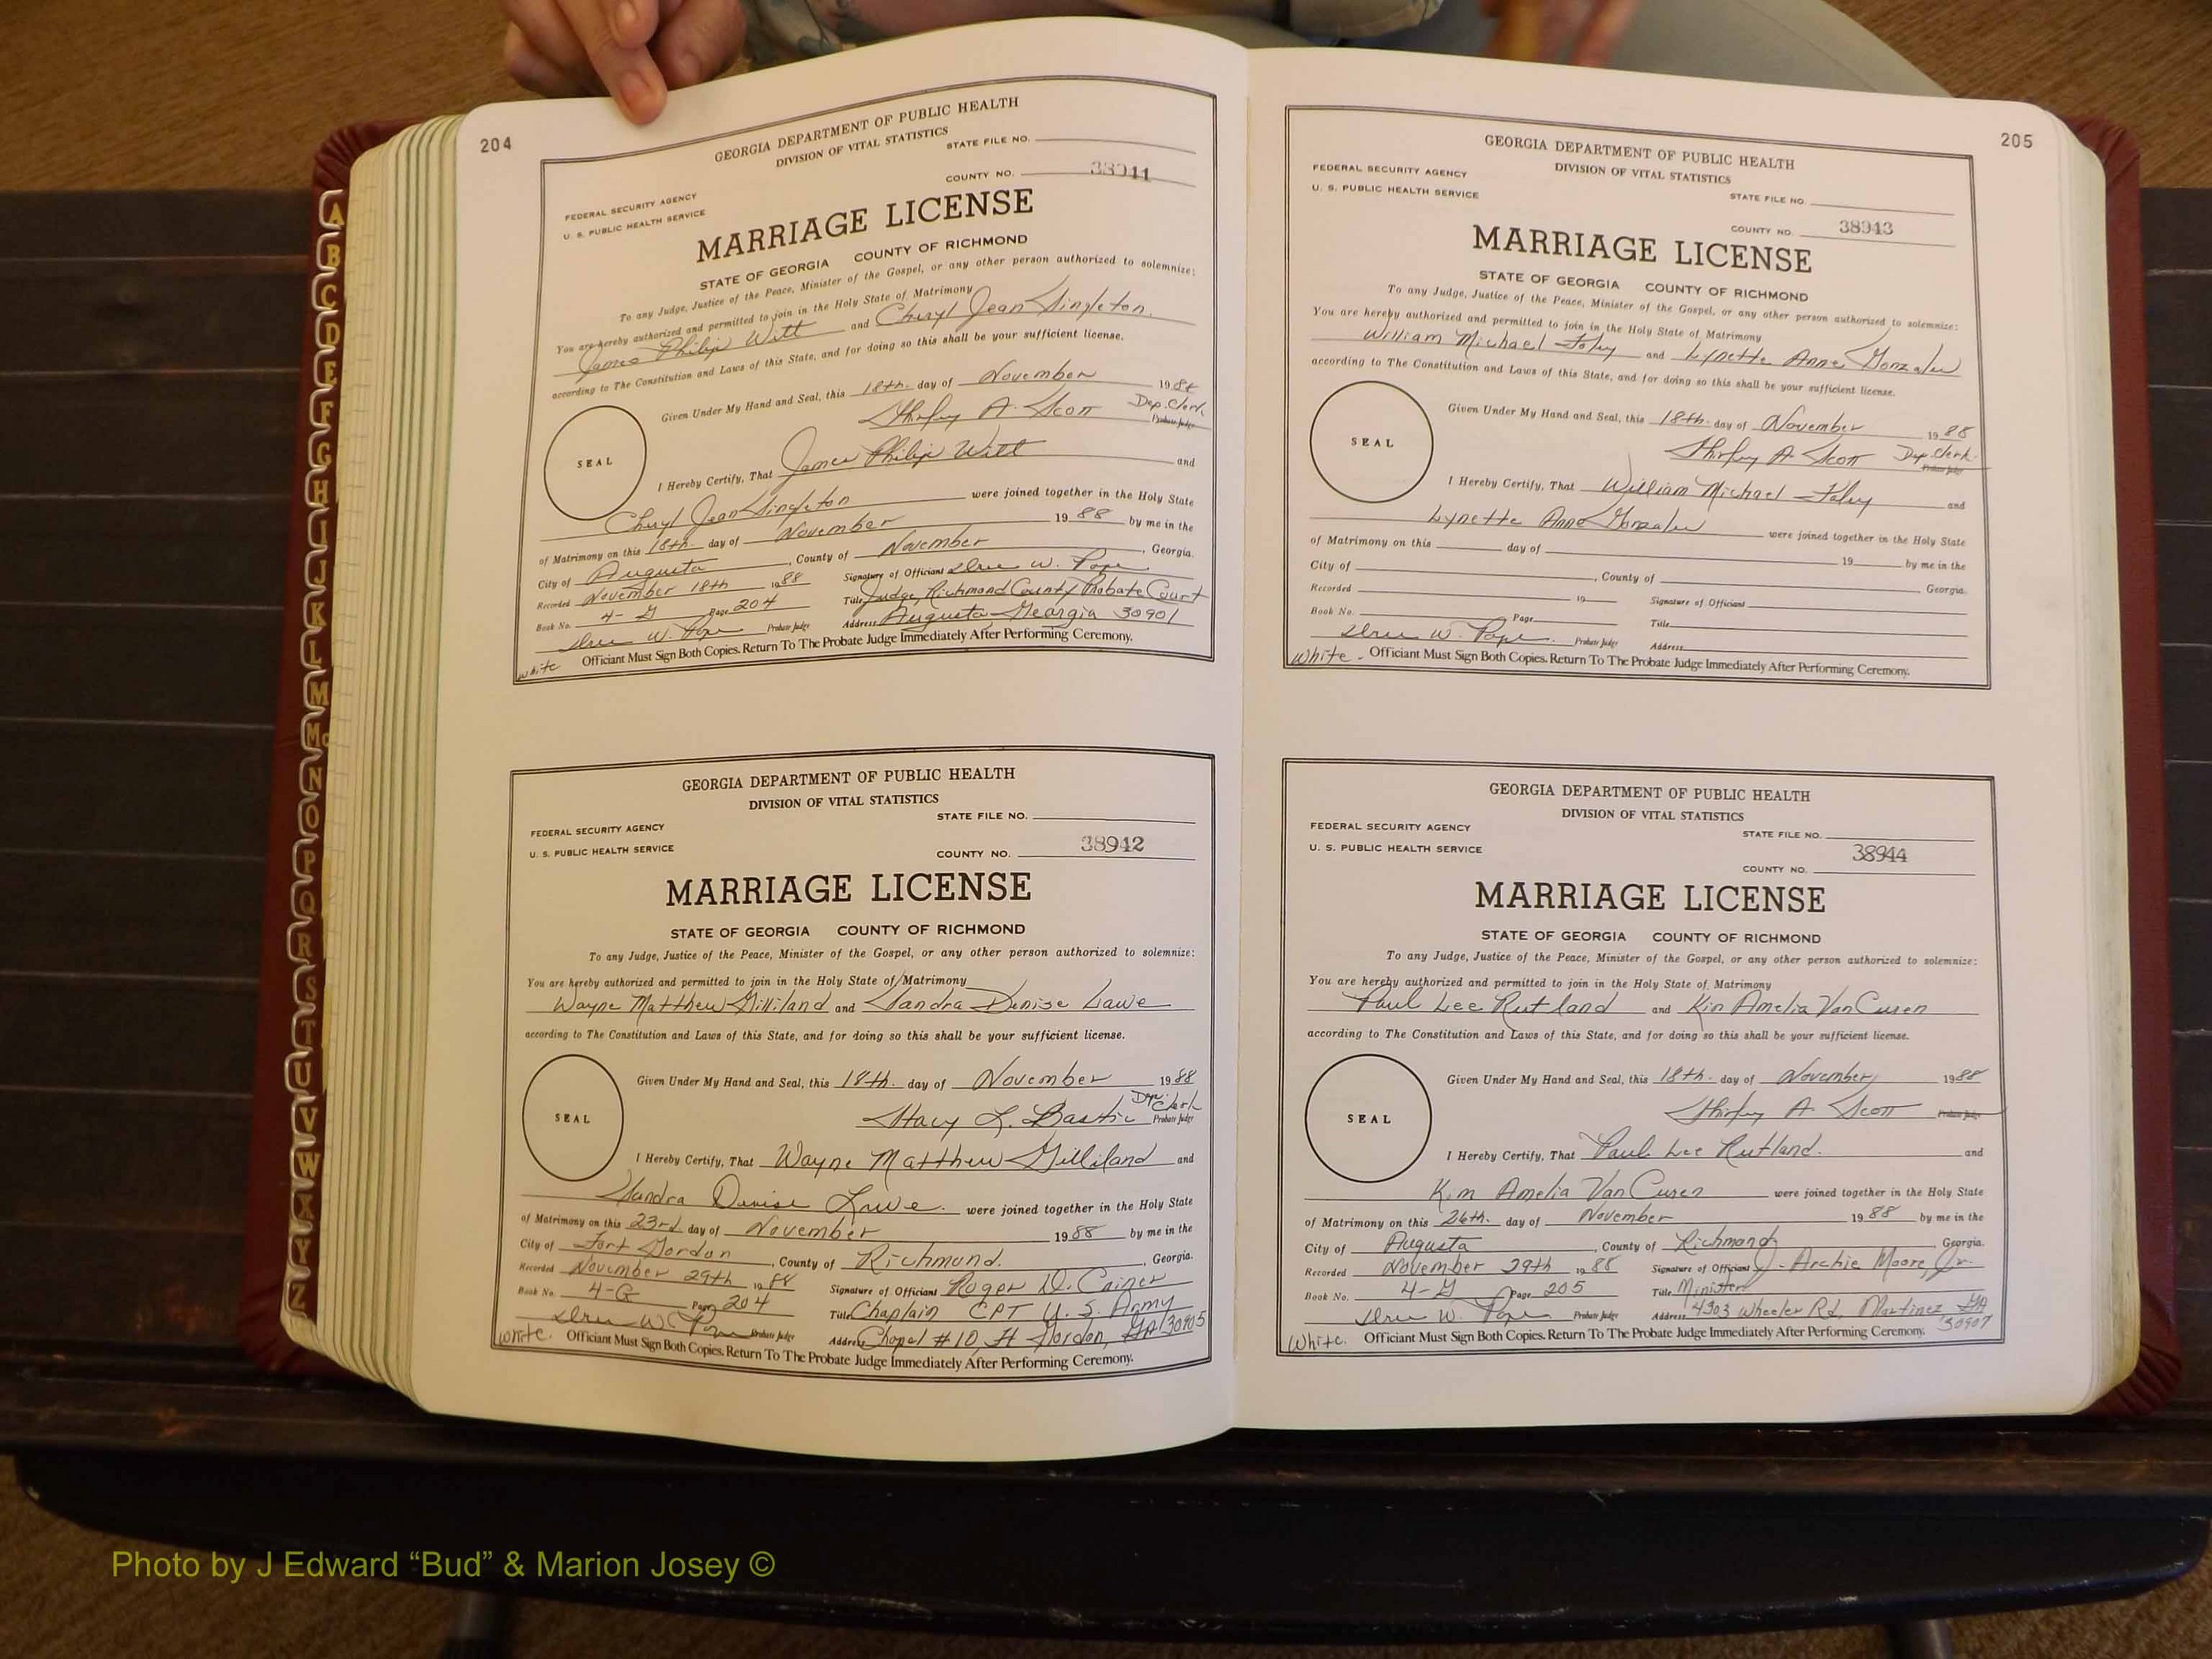 204
GEORGIA DEPARTMENT OF PUBLIC HEALTH
DIVISION OF VITAL STATISTICS
STATE FILE NO.
COUNTY NO. 38941
FEDERAL SECURITY AGENCY
U. S. PUBLIC HEALTH SERVICE
MARRIAGE LICENSE
STATE OF GEORGIA COUNTY OF RICHMOND
To any Judge, Justice of the Peace, Minister of the Gospel, or any other person authorized to solemnize:
You are hereby authorized and permitted to join in the Holy State of Matrimony
James Philip Witt and Cheryl Jean Singleton
according to The Constitution and Laws of this State, and for doing so this shall be your sufficient license.
Given Under My Hand and Seal, this 18th. day of November 1988
Shirley A. Scott Dep. Clerk
Probate Judge
SEAL
I Hereby Certify, That James Philip Witt and
Cheryl Jean Singleton were joined together in the Holy State
of Matrimony on this 18th. day of November 19 88 by me in the
City of Augusta, County of November, Georgia.
Recorded November 18th 1988 Signature of Officiant W. Pope
Book No. 4-G Page 204 Title Judge, Richmond County Probate Court
W. Pope Probate Judge Address Augusta Georgia 30901
White Officiant Must Sign Both Copies. Return To The Probate Judge Immediately After Performing Ceremony.
GEORGIA DEPARTMENT OF PUBLIC HEALTH
DIVISION OF VITAL STATISTICS
STATE FILE NO.
FEDERAL SECURITY AGENCY
U. S. PUBLIC HEALTH SERVICE
COUNTY NO. 38942
MARRIAGE LICENSE
STATE OF GEORGIA COUNTY OF RICHMOND
To any Judge, Justice of the Peace, Minister of the Gospel, or any other person authorized to solemnize:
You are hereby authorized and permitted to join in the Holy State of Matrimony
Wayne Matthew Gilliland and Sandra Denise Lawe
according to The Constitution and Laws of this State, and for doing so this shall be your sufficient license.
Given Under My Hand and Seal, this 18th. day of November 1988
Stacy L. Bastic Dep. Clerk
Probate Judge
SEAL
I Hereby Certify, That Wayne Matthew Gilliland and
Sandra Denise Lawe. were joined together in the Holy State
of Matrimony on this 23rd day of November 1988 by me in the
City of Fort Gordon, County of Richmond., Georgia.
Recorded November 29th 1988 Signature of Officiant Roger D. Criner
Book No. 4-G Page 204 Title Chaplain CPT U. S. Army
W. Pope Probate Judge Address Chapel #10, Ft Gordon, GA 30905
White. Officiant Must Sign Both Copies. Return To The Probate Judge Immediately After Performing Ceremony.
205
GEORGIA DEPARTMENT OF PUBLIC HEALTH
DIVISION OF VITAL STATISTICS
FEDERAL SECURITY AGENCY
U. S. PUBLIC HEALTH SERVICE
STATE FILE NO.
COUNTY NO. 38943
MARRIAGE LICENSE
STATE OF GEORGIA COUNTY OF RICHMOND
To any Judge, Justice of the Peace, Minister of the Gospel, or any other person authorized to solemnize:
You are hereby authorized and permitted to join in the Holy State of Matrimony
William Michael Foley and Lynette Anne Gonzales
according to The Constitution and Laws of this State, and for doing so this shall be your sufficient license.
Given Under My Hand and Seal, this 18th. day of November 1988
Shirley A. Scott Dep. Clerk.
Probate Judge
SEAL
I Hereby Certify, That William Michael Foley and
Lynette Anne Gonzales were joined together in the Holy State
of Matrimony on this day of 19 by me in the
City of, County of, Georgia.
Recorded 19 Signature of Officiant
Book No. Page Title
W. Pope. Probate Judge Address
White. Officiant Must Sign Both Copies. Return To The Probate Judge Immediately After Performing Ceremony.
GEORGIA DEPARTMENT OF PUBLIC HEALTH
DIVISION OF VITAL STATISTICS
FEDERAL SECURITY AGENCY
U. S. PUBLIC HEALTH SERVICE
STATE FILE NO.
COUNTY NO. 38944
MARRIAGE LICENSE
STATE OF GEORGIA COUNTY OF RICHMOND
To any Judge, Justice of the Peace, Minister of the Gospel, or any other person authorized to solemnize:
You are hereby authorized and permitted to join in the Holy State of Matrimony
Paul Lee Rutland and Kim Amelia VanCuren
according to The Constitution and Laws of this State, and for doing so this shall be your sufficient license.
Given Under My Hand and Seal, this 18th. day of November 1988
Shirley A. Scott Probate Judge
SEAL
I Hereby Certify, That Paul Lee Rutland. and
Kim Amelia VanCuren were joined together in the Holy State
of Matrimony on this 26th. day of November 19 88 by me in the
City of Augusta, County of Richmond, Georgia.
Recorded November 29th 1988 Signature of Officiant J. Archie Moore, Jr.
Book No. 4-G Page 205 Title Minister
W. Pope Probate Judge Address 4303 Wheeler Rd, Martinez GA 30907
White. Officiant Must Sign Both Copies. Return To The Probate Judge Immediately After Performing Ceremony.
A
B
C
D
E
F
G
H
I
J
K
L
M
Mc
N
O
P
Q
R
S
T
U
V
W
X
Y
Z
Photo by J Edward “Bud” & Marion Josey ©